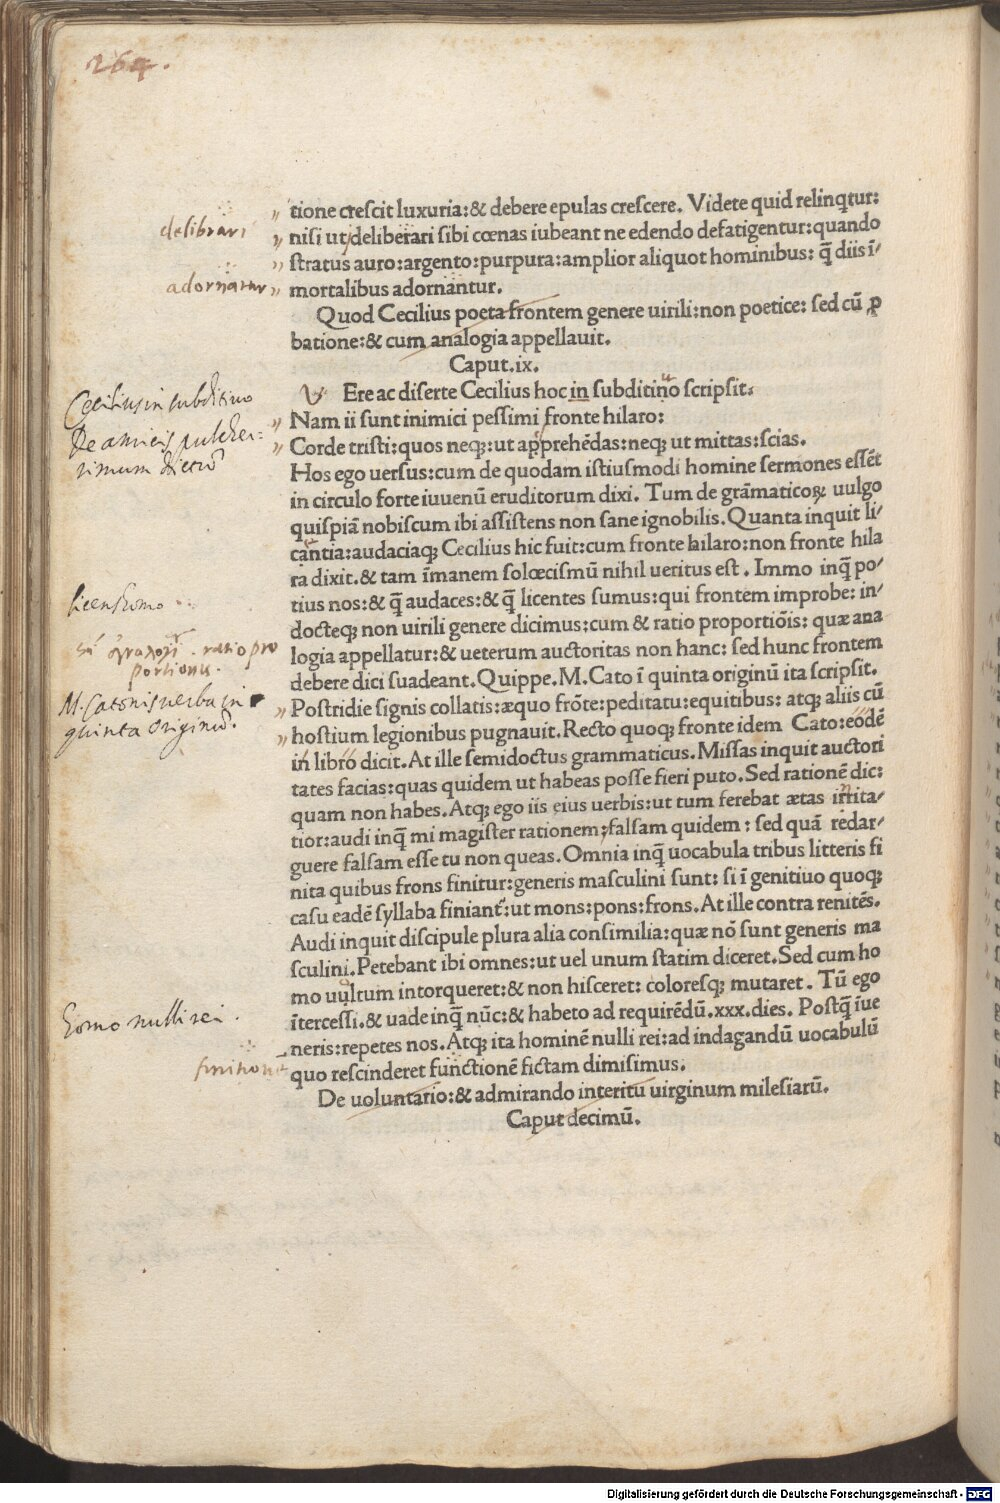 264.
tione crescit luxuria:& debere epulas crescere. Videte quid relinqtur:
delibrari
nisi ut deliberari sibi cœnas iubeant ne edendo defatigentur:quando
stratus auro:argento:purpura:amplior aliquot hominibus: q̄ diis ī/
adornatur
mortalibus adornantur.
Quod Cecilius poeta frontem genere uirili:non poetice: sed cū ꝓ
batione:& cum analogia appellauit.
Caput.ix.
V Ere ac diserte Cecilius hoc in subditino scripsit:
Cecilius in subditiuo
Nam ii sunt inimici pessimi fronte hilaro:
De amicis pulcher=
Corde tristi:quos neqꝫ:ut apprehēdas:neqꝫ ut mittas:scias.
rimum dictū
Hos ego uersus:cum de quodam istiusmodi homine sermones essēt
in circulo forte iuuenū eruditorum dixi. Tum de grāmaticoꝝ uulgo
quispiā nobiscum ibi assistens non sane ignobilis. Quanta inquit li/
cantia:audaciaqꝫ Cecilius hic fuit:cum fronte hilaro:non fronte hila
ra dixit.& tam īmanem solœcismū nihil ueritus est. Immo inq̄ po/
licens homo
tius nos:& q̄ audaces:& q̄ licentes sumus:qui frontem improbe: in/
docteqꝫ non uirili genere dicimus:cum & ratio proportiōis: quæ ana
ratio pro
portionis.
logia appellatur:& ueterum auctoritas non hanc: sed hunc frontem
debere dici suadeant. Quippe.M.Cato ī quinta originū ita scripsit.
M. Catonis uerba in
Postridie signis collatis:æquo frōte:peditatu:equitibus: atqꝫ aliis cū
quinta originū.
hostium legionibus pugnauit. Recto quoqꝫ fronte idem Cato:eōdē
in libro dicit. At ille semidoctus grammaticus. Missas inquit auctori
tates facias:quas quidem ut habeas posse fieri puto. Sed rationē dic:
quam non habes. Atqꝫ ego iis eius uerbis:ut tum ferebat ætas irrita/
tior:audi inq̄ mi magister rationem;falsam quidem: sed quā redar/
guere falsam esse tu non queas. Omnia inq̄ uocabula tribus litteris fi
nita quibus frons finitur:generis masculini sunt: si ī genitiuo quoqꝫ
casu eadē syllaba finiant:ut mons:pons:frons. At ille contra renitēs.
Audi inquit discipule plura alia consimilia:quæ nō sunt generis ma
sculini. Petebant ibi omnes:ut uel unum statim diceret. Sed cum ho
mo uultum intorqueret:& non hisceret: coloresqꝫ mutaret. Tū ego
ītercessi.& uade inq̄ nūc:& habeto ad requirēdū.xxx.dies. Postq̄ īue
homo nulli rei.
neris:repetes nos. Atqꝫ ita hominē nulli rei:ad indagandū uocabulū
quo rescinderet functionē fictam dimisimus.
De uoluntario:& admirando interitu uirginum milesiarū.
Caput decimū.
Digitalisierung gefördert durch die Deutsche Forschungsgemeinschaft - DFG